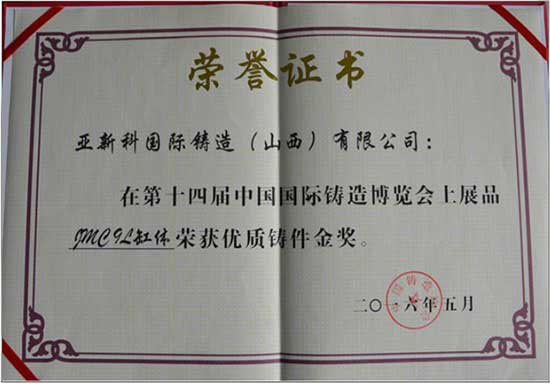 荣誉证书
亚新科国际铸造（山西）有限公司：
在第十四届中国国际铸造博览会上展品
JMC9L缸体荣获优质铸件金奖。
二〇一六年五月